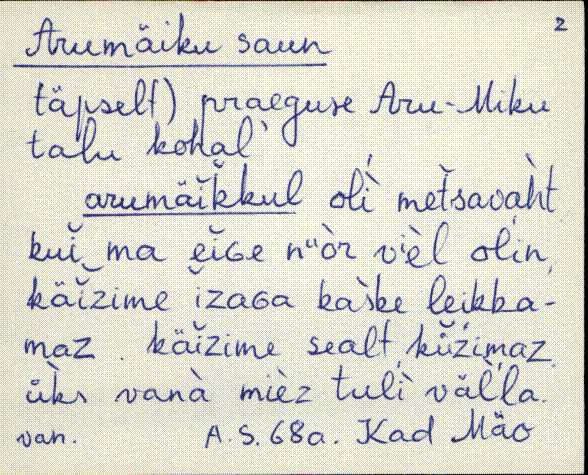 2
Arumäiku saun
täpselt) praeguse Aru-Miku
talu kohal
arumäĭkkul olì metsavàht
kuĭ ma eĭGe nuòr vièl olìn,
käĭzime ĭzaGa kaske leikka-
maz. käĭzime sealt kǜžimaz
ǜks vanà mièz tulì väl̀la.
van. A.S. 68a. Kad Mäo